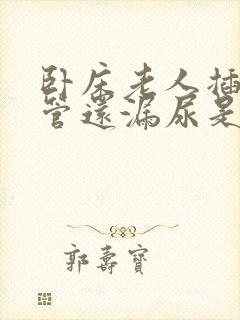 卧床老人插
管還漏尿是
郭壽寶